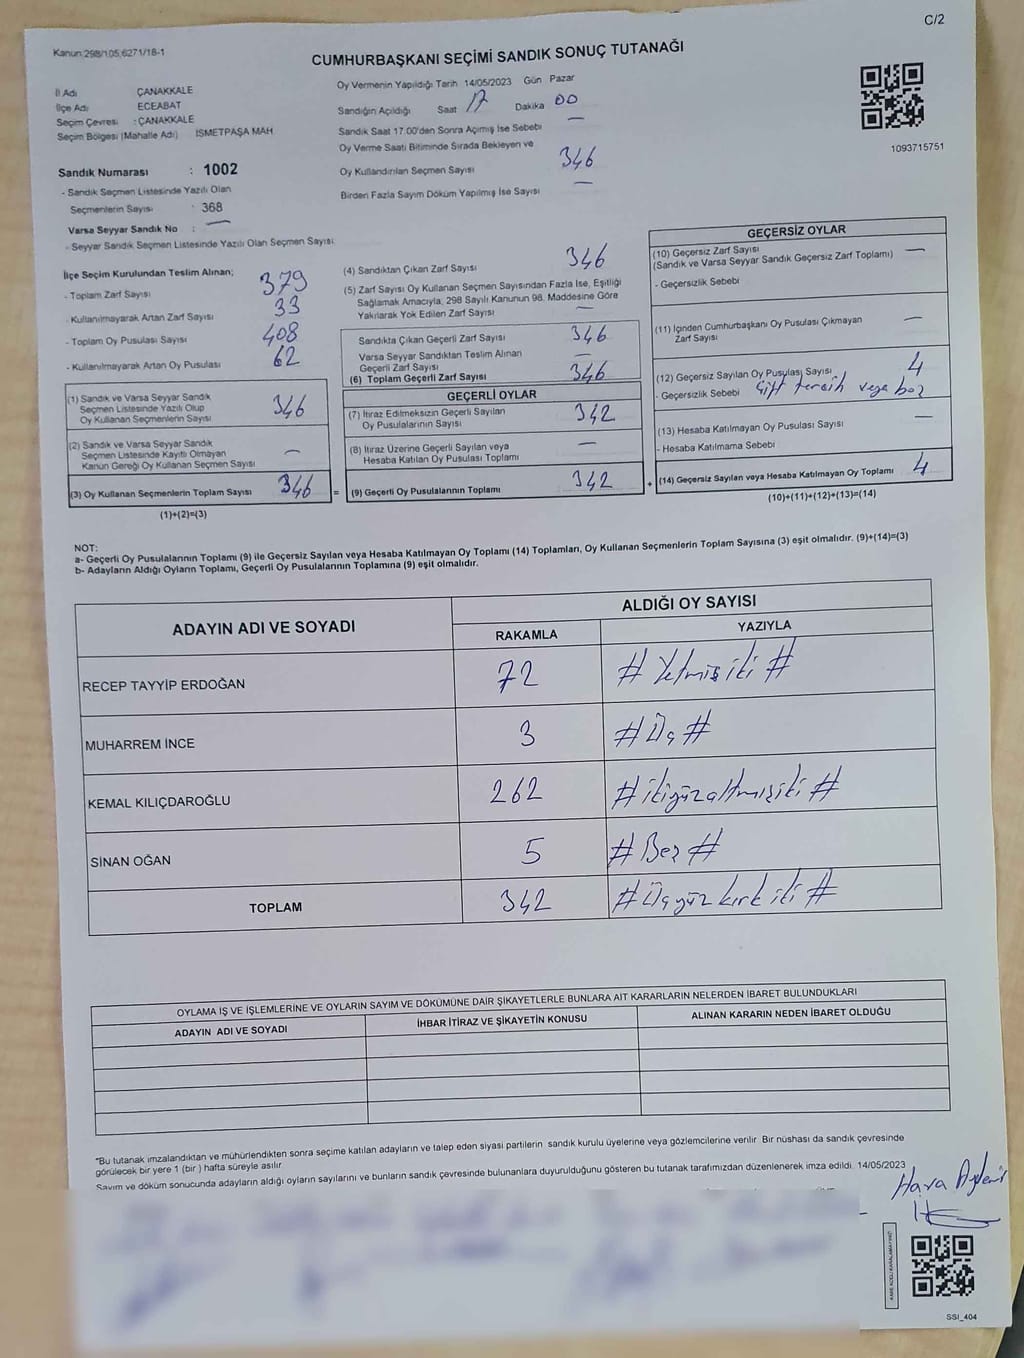 C/2
Kanun:298/105,6271/18-1
CUMHURBAŞKANI SEÇİMİ SANDIK SONUÇ TUTANAĞI
İl Adı ÇANAKKALE
İlçe Adı ECEABAT
Seçim Çevresi : ÇANAKKALE
Seçim Bölgesi (Mahalle Adı) İSMETPAŞA MAH
Oy Vermenin Yapıldığı Tarih 14/05/2023 Gün Pazar
Sandığın Açıldığı Saat 17 Dakika 00
Sandık Saat 17.00'den Sonra Açılmış İse Sebebi —
Oy Verme Saati Bitiminde Sırada Bekleyen ve
Oy Kullandırılan Seçmen Sayısı 346
Birden Fazla Sayım Döküm Yapılmış İse Sayısı —
1093715751
Sandık Numarası : 1002
- Sandık Seçmen Listesinde Yazılı Olan
Seçmenlerin Sayısı : 368
Varsa Seyyar Sandık No : —
- Seyyar Sandık Seçmen Listesinde Yazılı Olan Seçmen Sayısı:
İlçe Seçim Kurulundan Teslim Alınan;
- Toplam Zarf Sayısı 379
- Kullanılmayarak Artan Zarf Sayısı 33
- Toplam Oy Pusulası Sayısı 408
- Kullanılmayarak Artan Oy Pusulası 62
(1) Sandık ve Varsa Seyyar Sandık
Seçmen Listesinde Yazılı Olup
Oy Kullanan Seçmenlerin Sayısı 346
(2) Sandık ve Varsa Seyyar Sandık
Seçmen Listesinde Kayıtlı Olmayan
Kanun Gereği Oy Kullanan Seçmen Sayısı —
(3) Oy Kullanan Seçmenlerin Toplam Sayısı 346
(1)+(2)=(3)
(4) Sandıktan Çıkan Zarf Sayısı 346
(5) Zarf Sayısı Oy Kullanan Seçmen Sayısından Fazla İse, Eşitliği
Sağlamak Amacıyla, 298 Sayılı Kanunun 98. Maddesine Göre
Yakılarak Yok Edilen Zarf Sayısı —
Sandıkta Çıkan Geçerli Zarf Sayısı 346
Varsa Seyyar Sandıktan Teslim Alınan
Geçerli Zarf Sayısı —
(6) Toplam Geçerli Zarf Sayısı 346
GEÇERLİ OYLAR
(7) İtiraz Edilmeksizin Geçerli Sayılan
Oy Pusulalarının Sayısı 342
(8) İtiraz Üzerine Geçerli Sayılan veya
Hesaba Katılan Oy Pusulası Toplamı —
= (9) Geçerli Oy Pusulalarının Toplamı 342
GEÇERSİZ OYLAR
(10) Geçersiz Zarf Sayısı —
(Sandık ve Varsa Seyyar Sandık Geçersiz Zarf Toplamı)
- Geçersizlik Sebebi
(11) İçinden Cumhurbaşkanı Oy Pusulası Çıkmayan
Zarf Sayısı —
(12) Geçersiz Sayılan Oy Pusulası Sayısı 4
- Geçersizlik Sebebi Çift tercih veya boş
(13) Hesaba Katılmayan Oy Pusulası Sayısı —
- Hesaba Katılmama Sebebi
+ (14) Geçersiz Sayılan veya Hesaba Katılmayan Oy Toplamı 4
(10)+(11)+(12)+(13)=(14)
NOT:
a- Geçerli Oy Pusulalarının Toplamı (9) ile Geçersiz Sayılan veya Hesaba Katılmayan Oy Toplamı (14) Toplamları, Oy Kullanan Seçmenlerin Toplam Sayısına (3) eşit olmalıdır. (9)+(14)=(3)
b- Adayların Aldığı Oyların Toplamı, Geçerli Oy Pusulalarının Toplamına (9) eşit olmalıdır.
ADAYIN ADI VE SOYADI ALDIĞI OY SAYISI
RAKAMLA YAZIYLA
RECEP TAYYİP ERDOĞAN 72 # Yetmiş iki #
MUHARREM İNCE 3 # Üç #
KEMAL KILIÇDAROĞLU 262 # ikiyüzaltmışiki #
SİNAN OĞAN 5 # Beş #
TOPLAM 342 # Üçyüz kırk iki #
OYLAMA İŞ VE İŞLEMLERİNE VE OYLARIN SAYIM VE DÖKÜMÜNE DAİR ŞİKAYETLERLE BUNLARA AİT KARARLARIN NELERDEN İBARET BULUNDUKLARI
ADAYIN ADI VE SOYADI İHBAR İTİRAZ VE ŞİKAYETİN KONUSU ALINAN KARARIN NEDEN İBARET OLDUĞU
*Bu tutanak imzalandıktan ve mühürlendikten sonra seçime katılan adayların ve talep eden siyasi partilerin sandık kurulu üyelerine veya gözlemcilerine verilir. Bir nüshası da sandık çevresinde
görülecek bir yere 1 (bir) hafta süreyle asılır.
Sayım ve döküm sonucunda adayların aldığı oyların sayılarını ve bunların sandık çevresinde bulunanlara duyurulduğunu gösteren bu tutanak tarafımızdan düzenlenerek imza edildi. 14/05/2023
KARE KODU KARALAMAYINIZ!
SSI_404